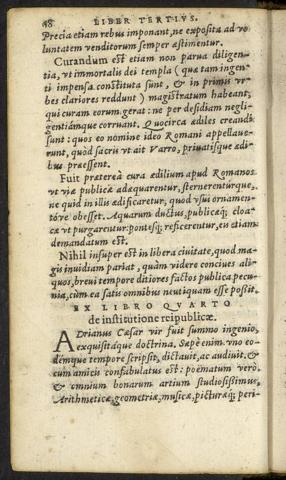 48 LIBER TERTIVS.
Precia etiam rebus imponant, ne exposita ad vo
luntatem venditorum semper æstimentur.
Curandum est etiam non parua diligen-
tia, vt immortalis dei templa (quæ tam ingen-
ti impensa constituta sunt, & in primis vr-
bes clariores reddunt) magistratum habeant,
qui curam eorum gerat: ne per desidiam negli-
gentiámque corruant. Quocirca ædiles creandi
sunt: quos eo nomine ideo Romani appellaue-
runt, quòd sacris vt ait Varro, priuatisque ædi-
bus præessent.
Fuit præterea cura ædilium apud Romanos
vt viæ publicæ adæquarentur, sternerenturque,
ne quid in illis ædificaretur, quod vsui ornamen-
tóve obesset. Aquarum ductus, publicæq; cloa-
cæ vt purgarentur: pontesq; reficerentur, eis etiam
demandatum est.
Nihil insuper est in libera ciuitate, quod ma-
gis inuidiam pariat, quàm videre conciues ali-
quos, breui tempore ditiores factos publica pecu-
nia, cùm ea satis omnibus neutiquam esse possit.
EX LIBRO QVARTO
de institutione reipublicæ.
ADrianus Cæsar vir fuit summo ingenio,
exquisitáque doctrina. Sæpe enim vno eo-
démque tempore scripsit, dictauit, ac audiuit, &
cum amicis confabulatus est: poëmatum verò
& omnium bonarum artium studiosissimus,
Arithmeticæ, geometriæ, musicæ, picturæq; peri-